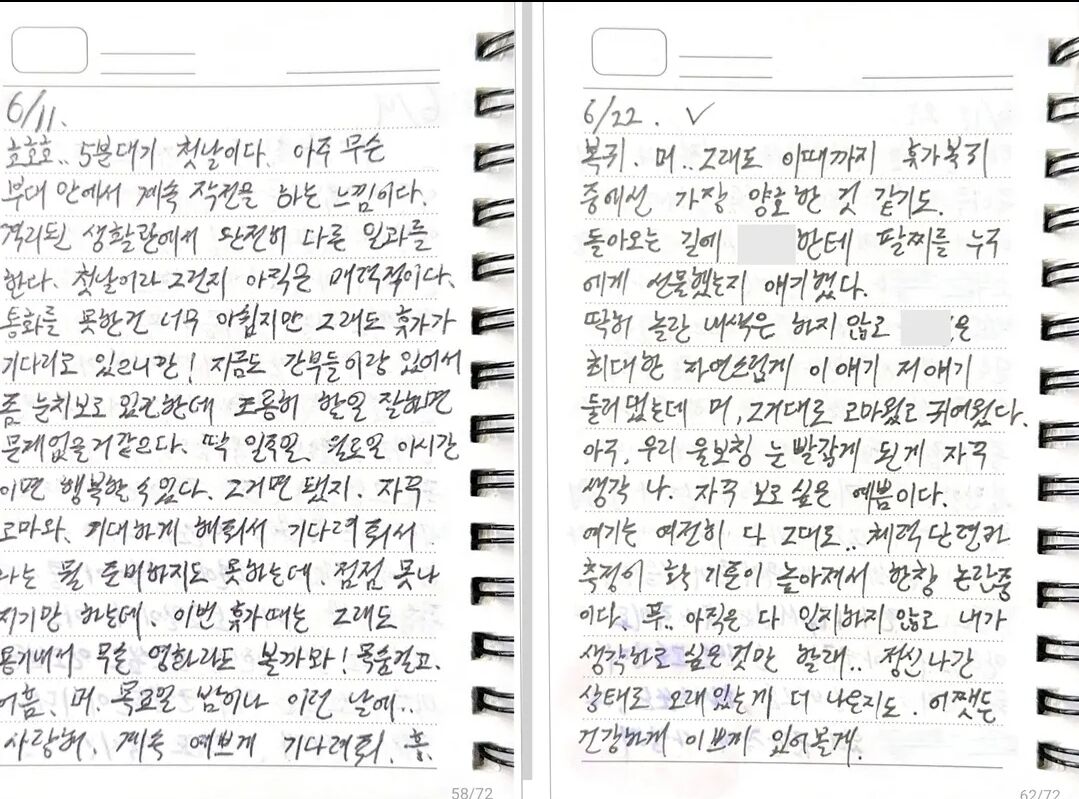 6/11.
호호호.. 5분대기 첫날이다. 아주 무슨
부대 안에서 계속 작전을 하는 느낌이다.
격리된 생활관에서 완전히 다른 일과를
한다. 첫날이라 그런지 아직은 매력적이다.
통화를 못한건 너무 아쉽지만 그래도 휴가가
기다리고 있으니깐! 지금도 간부들이랑 있어서
좀 눈치보고 있긴한데 조용히 할일 잘하면
문제없을거같으다. 딱 일주일, 월요일 이시간
이면 행복할 수 있다. 그거면 됐지. 자꾸
고마와. 기대하게 해줘서 기다려줘서
나는 뭘 준비하지도 못하는데. 점점 못나
지기만 하는데. 이번 휴가때는 그래도
용기내서 무슨 영화라도 볼까와! 목숨걸고.
어흠. 머. 목요일 밤이나 이런 날에..
사랑해. 계속 예쁘게 기다려줘. 흥.
58/72
6/22. ✓
복귀. 머.. 그래도 이때까지 휴가복귀
중에선 가장 양호한 것 같기도.
돌아오는 길에 한테 팔찌를 누구
에게 선물했는지 얘기했다.
딱히 놀란 내색은 하지 않고 은
최대한 자연스럽게 이 얘기 저 얘기
둘러댔는데 머, 그거대로 고마웠고 귀여웠다.
아주, 우리 울보칭 눈 빨갛게 된게 자꾸
생각 나. 자꾸 보고 싶은 예쁨이다.
여기는 여전히 다 그대로.. 체력단련과
측정이 확 기준이 높아져서 한창 논란중
이다. 푸.. 아직은 다 인지하지 않고 내가
생각하고 싶은 것만 할래.. 정신 나간
상태로 오래 있는게 더 나은지도. 어쨌든
건강하게 이쁘게 있어볼게.
62/72